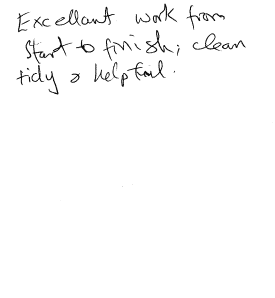 Excellant work from
start to finish; clean
tidy & helpful.